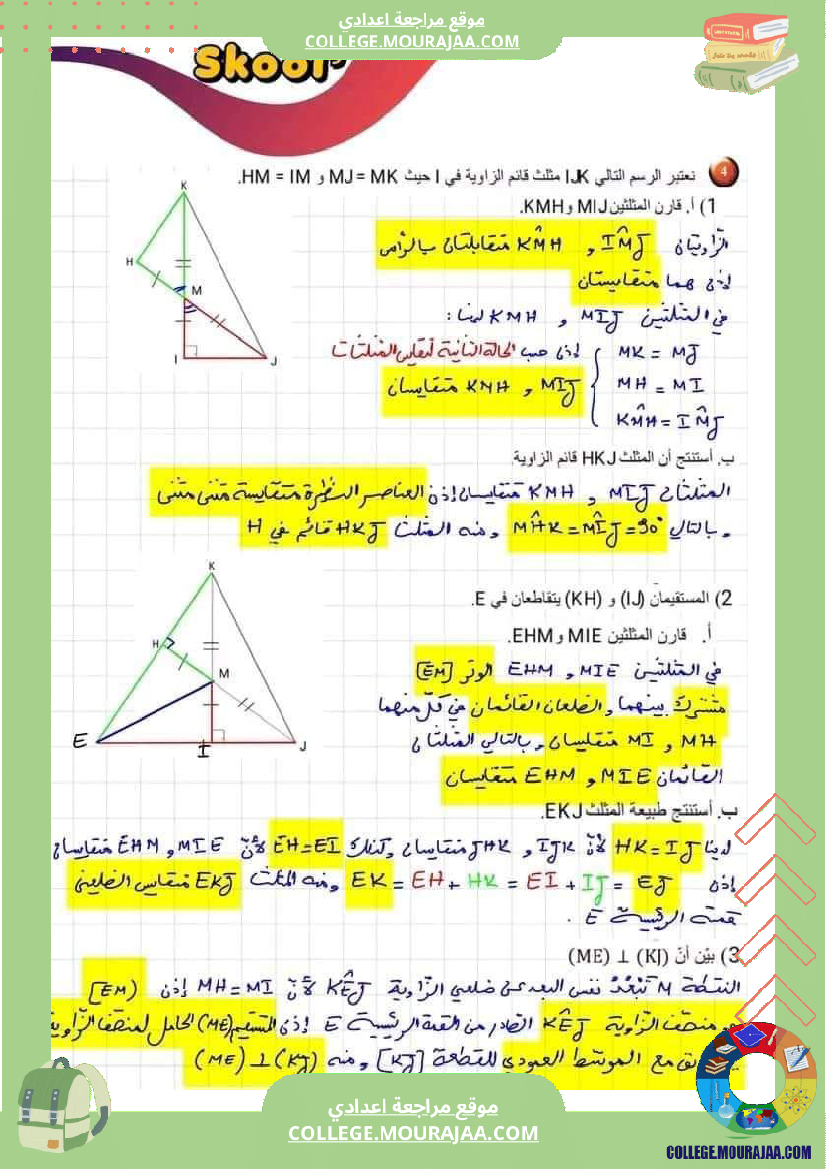 موقع مراجعة اعدادي
COLLEGE.MOURAJAA.COM
Skool
4 نعتبر الرسم التالي IJK مثلث قائم الزاوية في I حيث MJ = MK و HM = IM.
1) أ. قارن المثلثين MIJ و KMH.
الزّاويتان IM̂J و KM̂H متقابلتان بالرأس
إذن هما متقايستان
في المثلثين MIJ و KMH لدينا:
MK = MJ
MH = MI
KM̂H = IM̂J
إذن حسب الحالة الثانية لتقايس المثلثات
MIJ و KMH متقايسان
ب. أستنتج أن المثلث HKJ قائم الزاوية
المثلثان MIJ و KMH متقايسان إذن العناصر النظيرة متقايسة مثنى مثنى
وبالتالي MĤK = MÎJ = 90° ومنه المثلث HKJ قائم في H
K
H
M
I
J
2) المستقيمان (IJ) و (KH) يتقاطعان في E.
أ. قارن المثلثين MIE و EHM.
في المثلثين MIE و EHM الوتر [EM]
مشترك بينهما والضلعان القائمان في كلّ منهما
MH و MI متقايسان وبالتالي المثلثان
القائمان MIE و EHM متقايسان
K
H
M
E
I
J
ب. أستنتج طبيعة المثلث EKJ.
لدينا HK = IJ لأنّ IJK و JHK متقايسان وكذلك EH = EI لأنّ MIE و EHM متقايسان
إذن EK = EH + HK = EI + IJ = EJ ومنه المثلث EKJ متقايس الضلعين
قمته الرئيسية E.
3) بيّن أنّ (KJ) ⊥ (ME)
النقطة M تبعد نفس البعد عن ضلعي الزّاوية KÊJ لأنّ MH = MI إذن [EM)
منصف الزاوية KÊJ الصادر من القمة الرئيسية E إذن المستقيم (ME) الحامل لمنصف الزّاوية
مع الموسّط العمودي للقطعة [KJ] ومنه (ME) ⊥ (KJ)
موقع مراجعة اعدادي
COLLEGE.MOURAJAA.COM
COLLEGE.MOURAJAA.COM